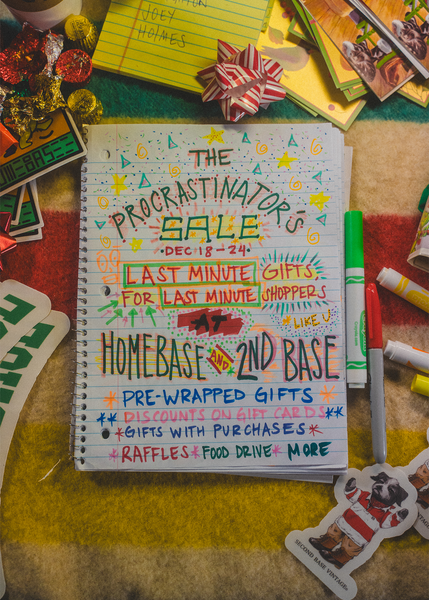 JOEY
HOLMES
HOMEBASE
THE
PROCRASTINATOR'S
SALE
DEC 18-24
LAST MINUTE GIFTS
FOR LAST MINUTE SHOPPERS
LIKE U
AT
HOMEBASE AND 2ND BASE
* PRE-WRAPPED GIFTS *
** DISCOUNTS ON GIFT CARDS **
* GIFTS WITH PURCHASES *
* RAFFLES * FOOD DRIVE * MORE
SECOND BASE VINTAGE